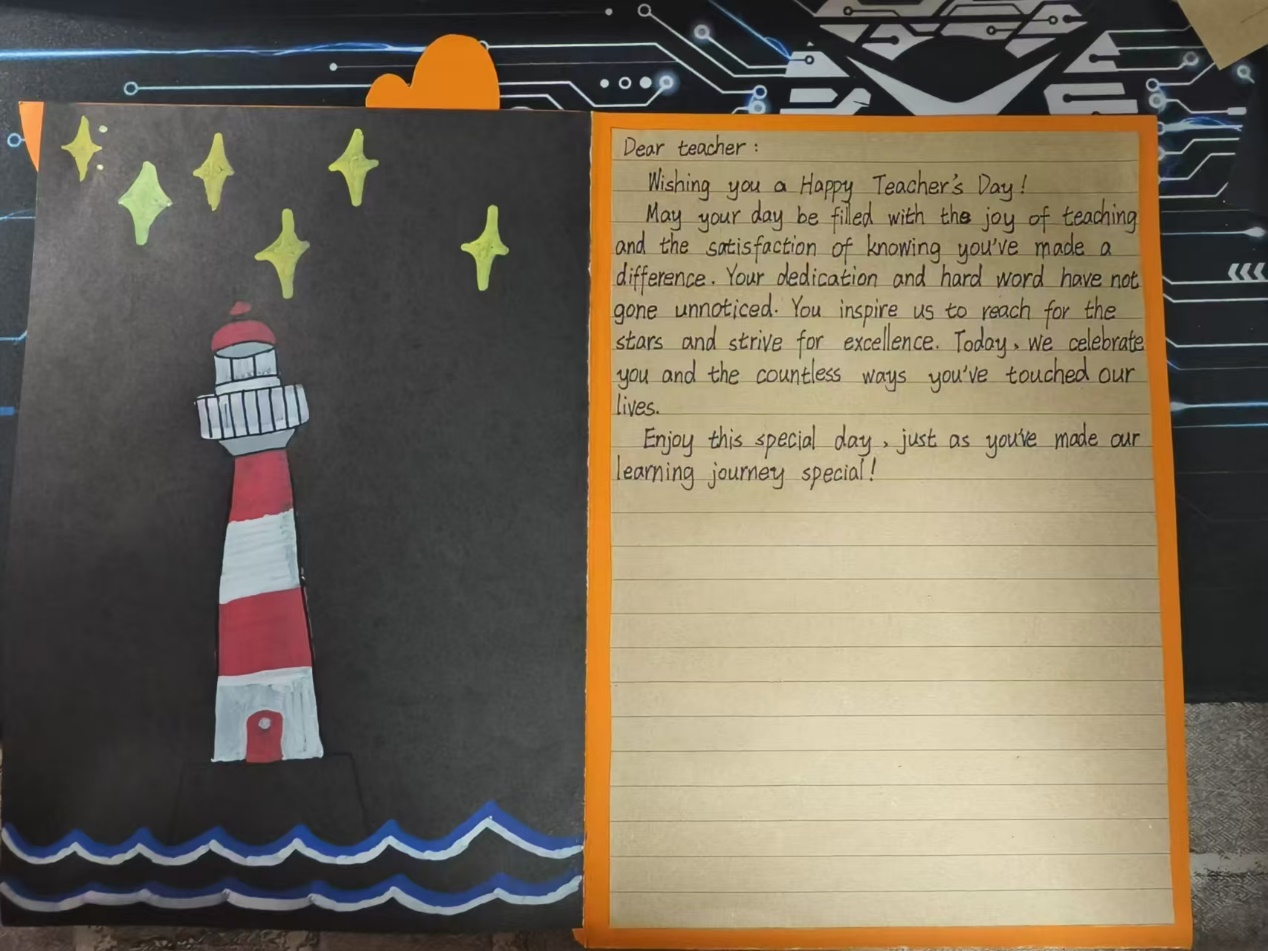 Dear teacher :
Wishing you a Happy Teacher's Day!
May your day be filled with the joy of teaching
and the satisfaction of knowing you've made a
difference. Your dedication and hard word have not
gone unnoticed. You inspire us to reach for the
stars and strive for excellence. Today, we celebrate
you and the countless ways you've touched our
lives.
Enjoy this special day, just as you've made our
learning journey special!